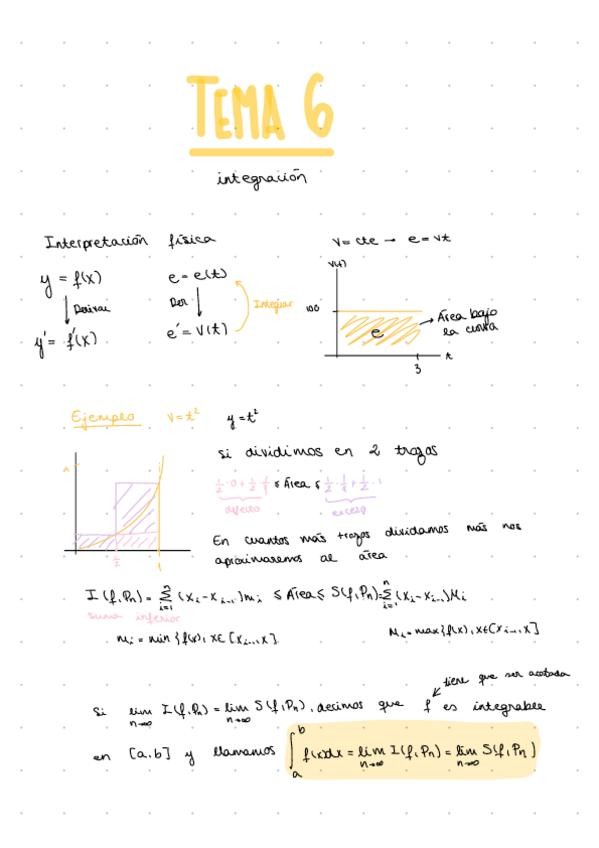 TEMA 6
integración
Interpretación física
y = f(x)
Derivar
y' = f'(x)
e = e(t)
Der
e' = v(t)
Integrar
v = cte → e = vt
v(t)
100
e
Área bajo
la curva
3
t
Ejemplo v = t² y = t²
1
1/2
1
si dividimos en 2 trozos
1/2 · 0 + 1/2 · 1/4 ≤ Área ≤ 1/2 · 1/4 + 1/2 · 1
defecto
exceso
En cuantos más trozos dividamos más nos
aproximaremos al área
I(f,Pn) = ∑ⁿᵢ₌₁ (xi - xi-1)mi ≤ Área ≤ S(f,Pn) = ∑ⁿᵢ₌₁ (xi - xi-1)Mi
suma inferior
mi = min{f(x), x∈[xi-1, x]
Mi = max{f(x), x∈[xi-1, x]
tiene que ser acotada
Si lim n→∞ I(f,Pn) = lim n→∞ S(f,Pn), decimos que f es integrable
en [a,b] y llamamos ∫ₐᵇ f(x)dx = lim n→∞ I(f,Pn) = lim n→∞ S(f,Pn)